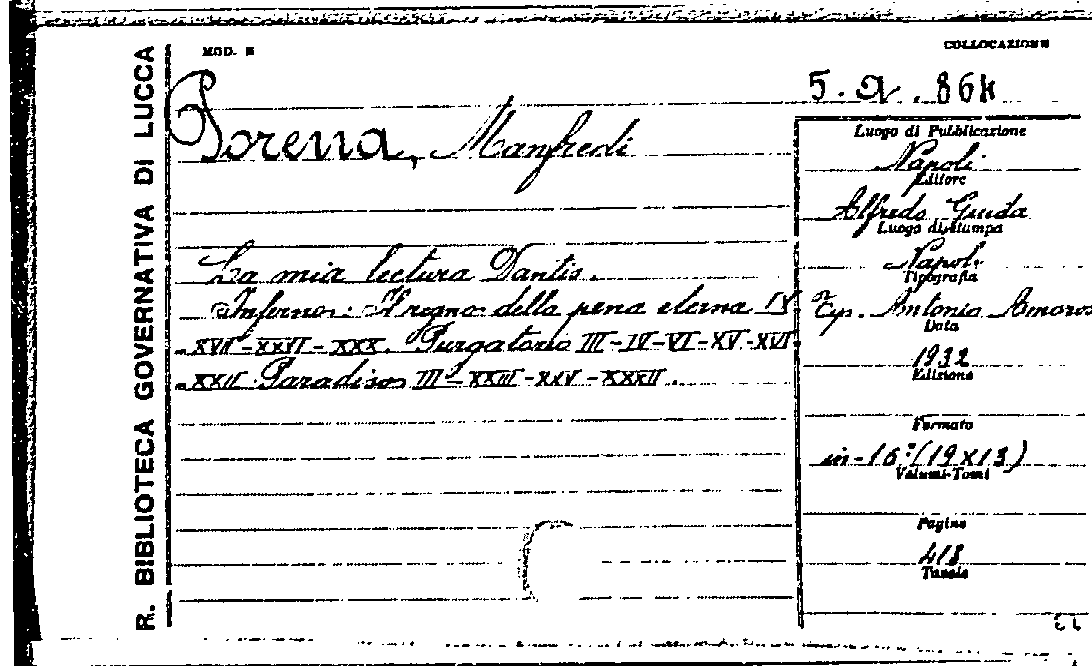 R. BIBLIOTECA GOVERNATIVA DI LUCCA
COLLOCAZIONE
5. a. 864
Porena, Manfredi
La mia lectura Dantis.
Inferno: Il regno della pena eterna IV-
-XVII-XXVI-XXX. Purgatorio III-IV-VI-XV-XVI-
-XXII Paradiso III-XXIII-XXV-XXXII.
Luogo di Pubblicazione
Napoli
Editore
Alfredo Guida
Luogo di stampa
Napoli
Tipografia
Tip. Antonio Amoros
Data
1932
Edizione
Formato
in-16°(19x13)
Volumi-Tomi
Pagine
418
Tavole